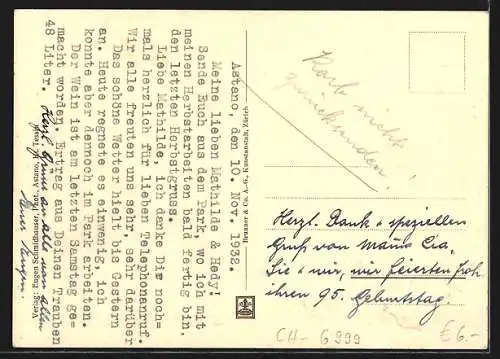 Astano, den 10. Nov. 1938.
Meine lieben Mathilde & Hedy!
Sende Euch aus dem Park, wo ich mit
meinen Herbstarbeiten bald fertig bin,
den letzten Herbstgruss.
Liebe Mathilde, ich danke Dir noch-
mals herzlich für lieben Telephonanruf.
Wir alle freuten uns sehr, sehr darüber
Das schöne Wetter hielt bis Gestern
an. Heute regnete es einwenig, ich
konnte aber dennoch im Park arbeiten.
Der Wein ist am letzten Samstag ge-
macht worden. Ertrag aus Deinen Trauben
48 Liter. Herzl. Grüsse an alle von allen
Euer Eugen.
Verlag: Eugen Schmidhauser, Phot., Astano, bei Lugano
Brunner & Co. A.-G., Kunstanstalt, Zürich
Karte nicht
zurücksenden!
Herzl. Dank & speziellen
Gruß von Mama Cia.
Sie & wir, wir feierten froh
ihren 95. Geburtstag.
CH-6999
€6.-